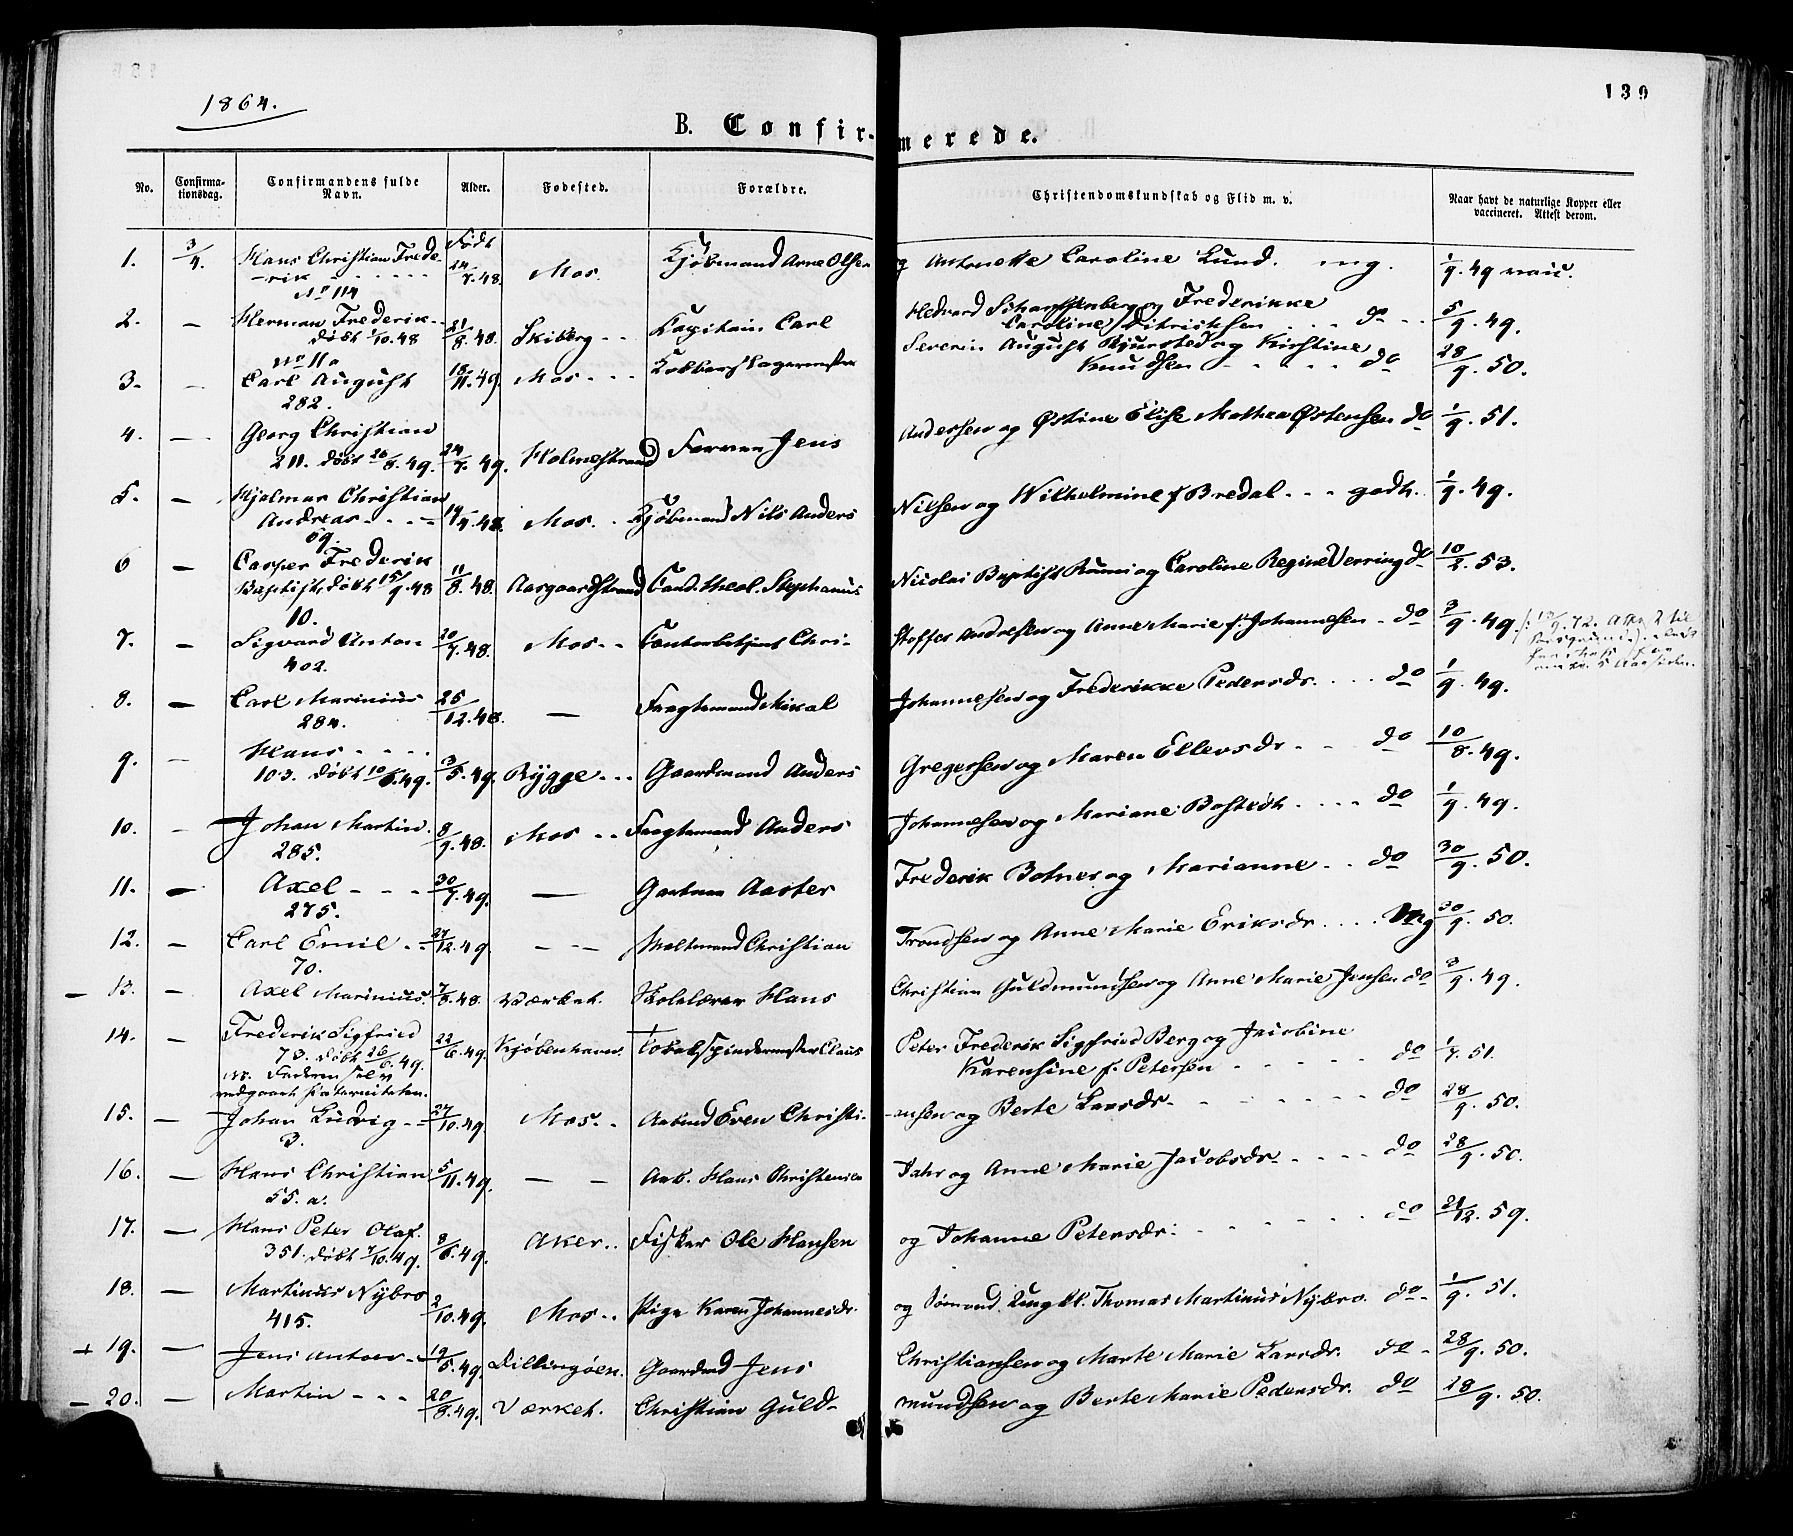 1864.
139
B. Confirmerede.
No. Confirmationsdag. Confirmandens fulde Navn. Alder. Fødested. Forældre. Christendomskundskab og Flid m. v. Naar havt de naturlige Kopper eller vaccineret. Attest derom.
1. 3/4. Hans Christian Frede- Født Kjøbmand Arne Olsen og Antonette Caroline Lund. mg. 1/9. 49 vacc.
-rik 24/7. 48. Mos.
No 114
2. — Herman Frederik 21/8. 48. Skiberg Kapitain Carl Hedvard Scharffenberg og Frederikke 5/9. 49.
Døbt 1/10. 48 Caroline Ditrichsen do
No 110 Severin August Bjursted og Kirstine 28/9. 50.
3. — Carl August 18/11. 49. Mos Knudsen do
282.
4. — Georg Christian Andersen og Østine Elise Mathea Østensen do 1/9. 51.
211. Døbt 26/8. 49. 24/7. 49. Holmestrand Jens
5. — Hjalmar Christian Nilsen og Wilhelmine f. Bredal godt. 1/9. 49.
Andreas 14/4. 48. Mos. Kjøbmand Nils Anders
69.
6 — Casper Frederik Nicolai Baptist og Caroline Regine Verring do 10/2. 53.
Baptist, Døbt 15/9. 48 11/8. 48. Aasgaardstrand Cand. theol. Stephanus
10.
7. — Sigvard Anton 20/7. 48. Mos Contorbetjent Chri- Stoffer Andresen og Anne Marie f. Johannesen do 3/9. 49
402.
8. — Carl Marinius 25/12. 48. — Fragtemand Mikal Johannesen og Frederikke Pedersdr. do 1/9. 49.
284.
9. — Hans Gregersen og Maren Ellevsdr do 10/8. 49.
103. Døbt 10/6. 49. 3/5. 49. Rygge Gaardmand Anders
10. — Johan Martin. 8/9. 48. Mos Fragtemand Anders Johannesen og Mariane do 1/9. 49.
285.
11. — Axel 30/7. 49. — Gartner Frederik Botner og Marianne do 30/9. 50.
275.
12. — Carl Emil 27/12. 49. — Christian Trondsen og Anne Marie Eriksdr. Mg 30/9. 50.
70.
— 13. — Axel Marinius. 7/8. 48. Værket. Skolelærer Hans Christian Guldmundsen og Anne Marie Jensen do 3/9. 49.
14. — Frederik Sigfried 22/6. 49. Kjøbenhavn. Tobakspindermester Claus Peter Frederik Sigfried Berg og Jacobine 1/7. 51.
73. Døbt 26/6. 49. Karensine f. Petersen do
NB. Faderen selv
vedgaaet paterniteten.
15. — Johan Ludvig 27/10. 49. Mos. Arbmd Even Christi- -ansen og Berte Larsdr. do 28/9. 50.
3.
16. — Hans Christian 5/11. 49. — — Arb. Hans Christensen og Anne Marie Jacobsdr do 28/9. 50.
55. a.
17. — Hans Peter Olaf. Aker Fisker Ole Hansen og Johanne Petersdr. do 21/12. 59.
351. Døbt 7/10. 49. 8/6. 49.
18. — Martinus Nybro 2/10. 49. Mos Pige Karen Johannesdr. og Sømand Ungkl. Thomas Martinus Nybro. do 1/9. 51.
415.
+ 19. — Jens Anton 19/5. 49. Dillingøen. Gaardmd Jens Christiansen og Marte Marie Larsdr. do 28/9. 50.
— 20. — Martin 20/8. 49. Værket. Christian Guld- mundsen og Berte Marie Pedersdr. do 28/9. 50.